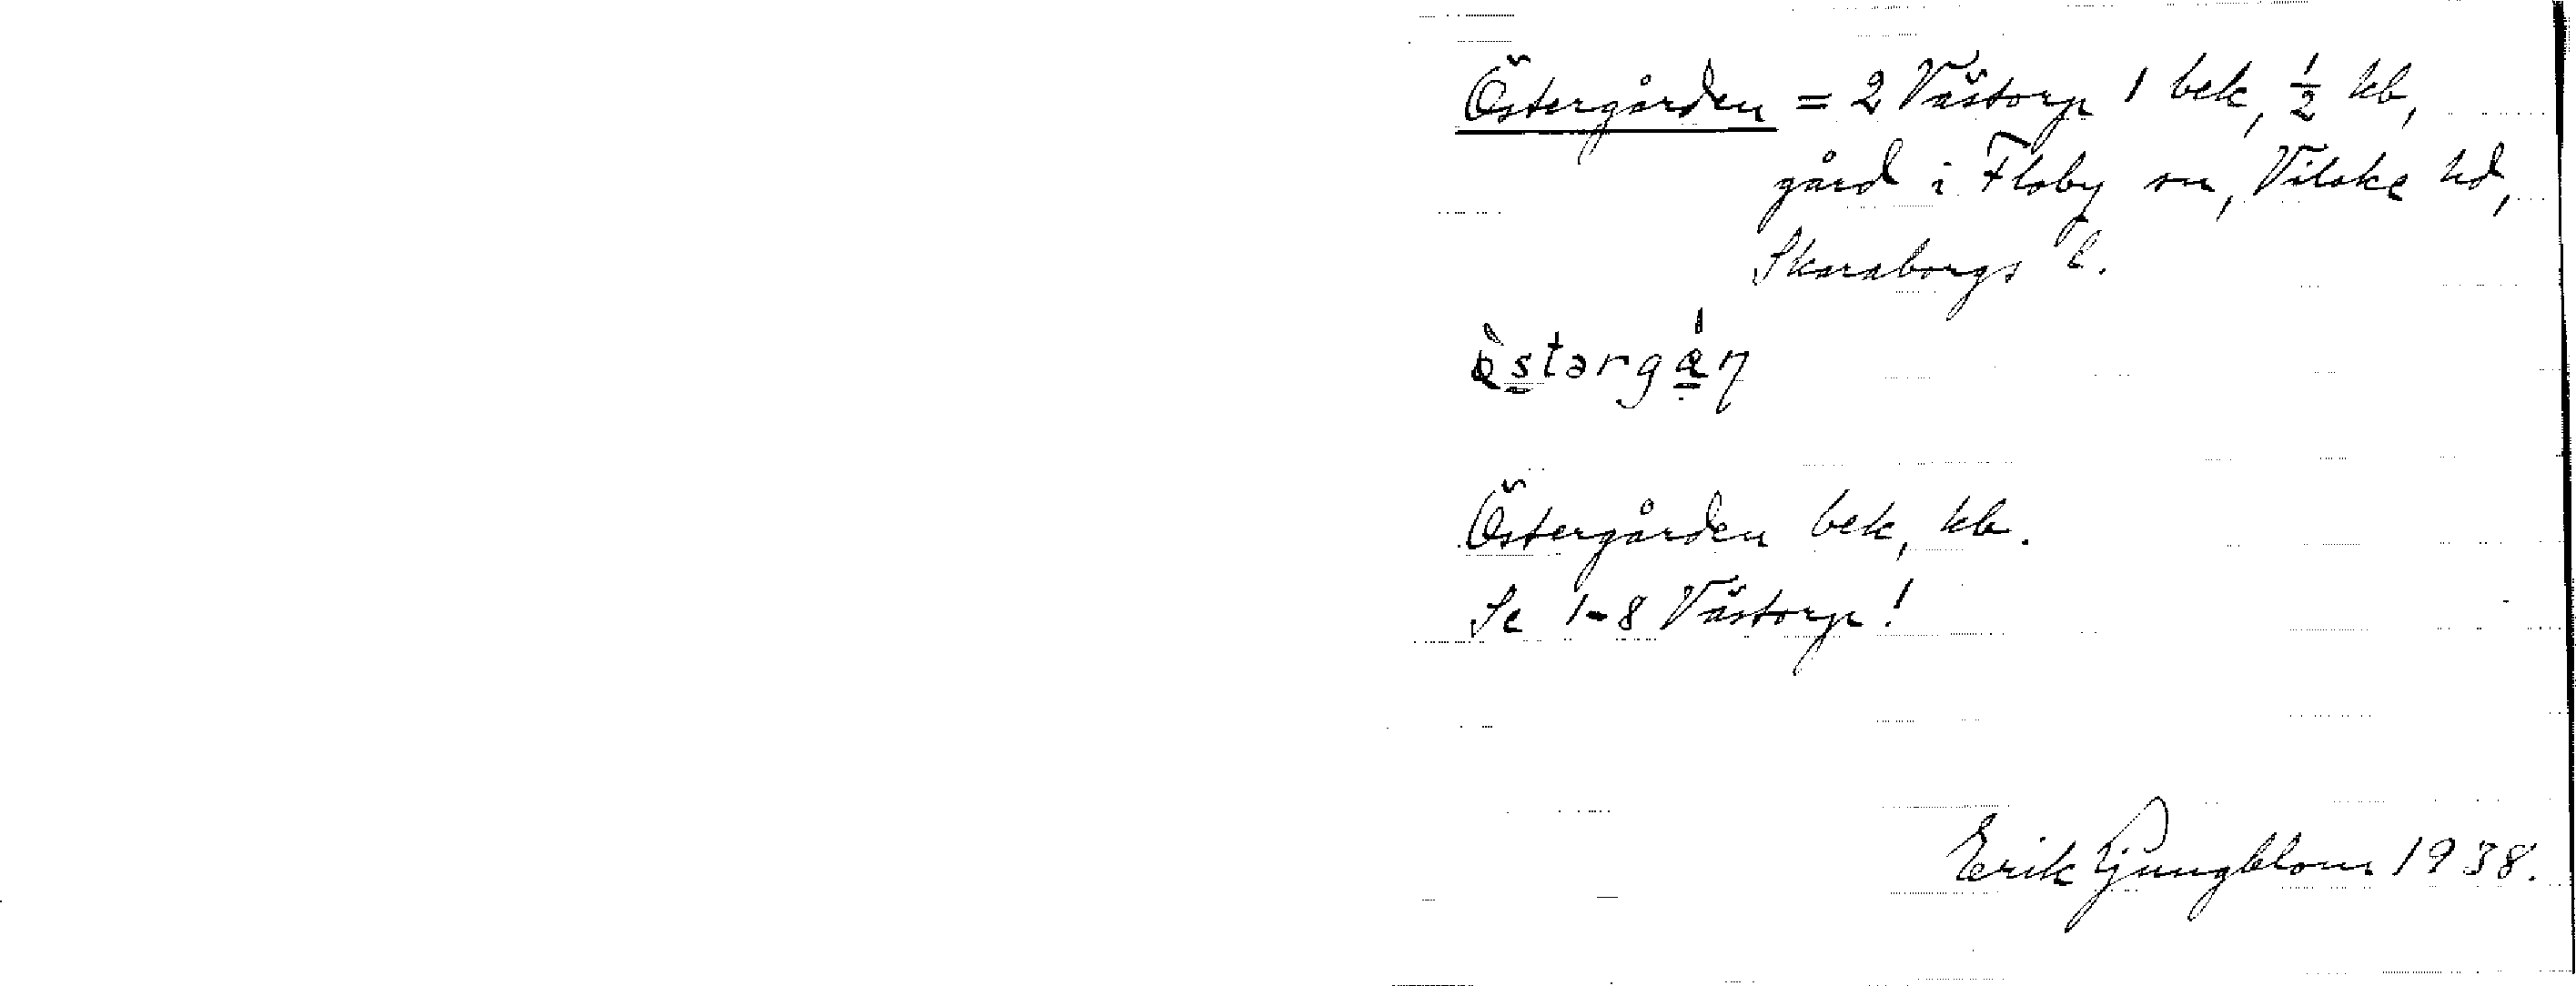 Östergården = 2 Västorp 1 bek, ½ kb,
gård i Floby sn, Vilske hd,
Skaraborgs l.
Östergården bek, kb.
Se 1-8 Västorp!
Erik Ljungblom 1938.